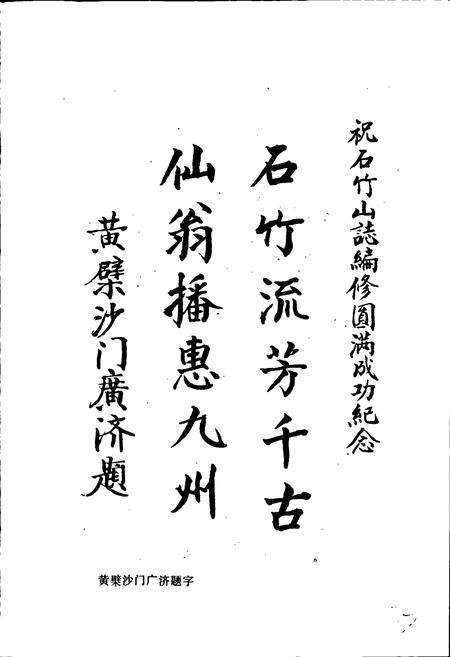 祝石竹山誌編修圓滿成功紀念
石竹流芳千古
仙翁播惠九州
黄檗沙门廣济題
黄檗沙门广济题字